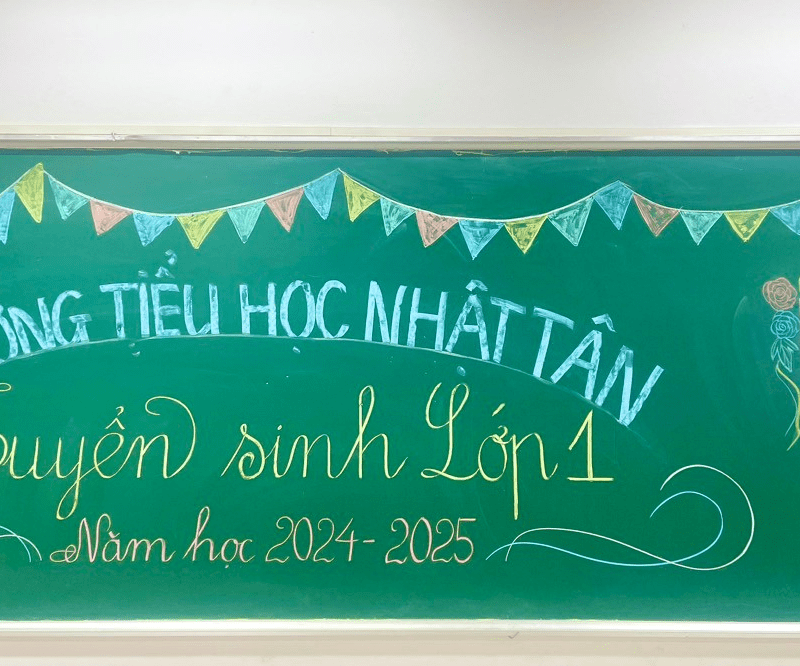 ỜNG TIỂU HỌC NHẬT TÂN
uyển sinh Lớp 1
Năm học 2024-2025